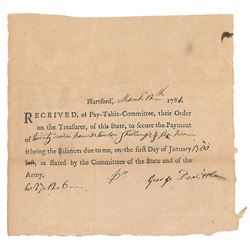 Hartford, March 12th 1781.
RECEIVED, of Pay-Table-Committee, their Order
on the Treasurer, of this State, to secure the Payment
of twenty seven pounds twelve Shillings & six pence
it being the Balances due to me, on the first day of January 1780
last, as stated by the Committees of the State and of the
Army.
£27..12..6
George